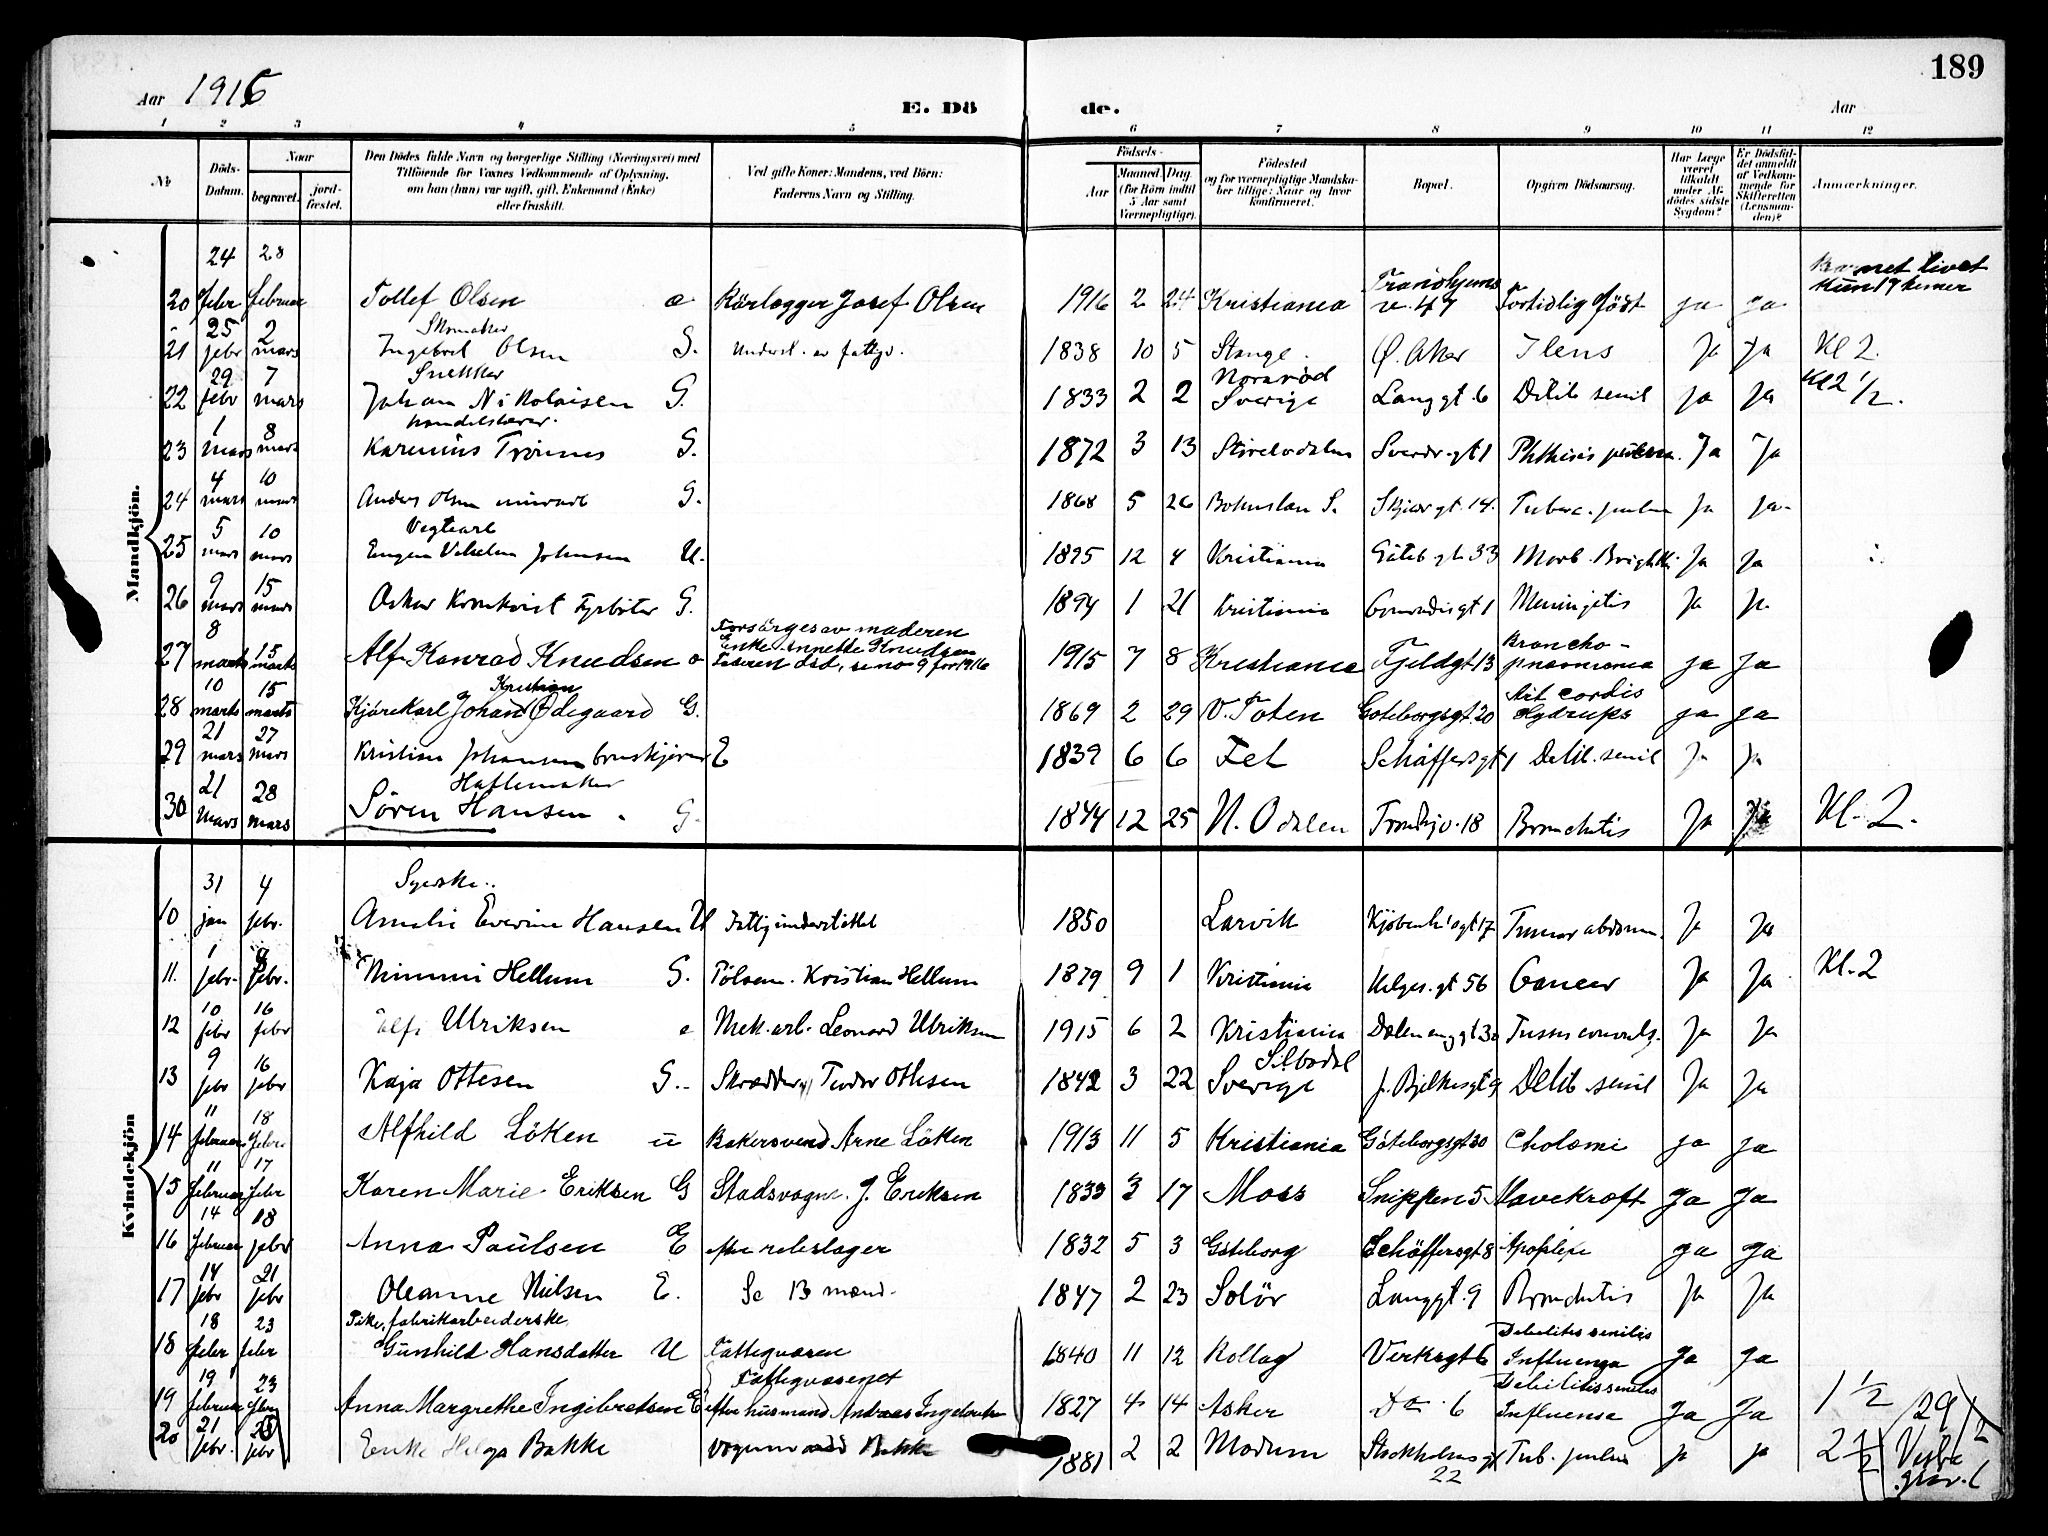 189
Aar 1916
E. Dö de.
Aar
1 2 3 4 5 6 7 8 9 10 11 12
No
Döds-Datum.
Naar begravet. jord-fæstet.
Den Dödes fulde Navn og borgerlige Stilling (Næringsvei) med Tilföiende for Voxnes Vedkommende af Oplysning, om han (hun) var ugift, gift, Enkemand (Enke) eller fraskilt.
Ved gifte Koner: Mandens, ved Börn: Faderens Navn og Stilling.
Födsels- Aar Maaned Dag (for Börn indtil 5 Aar samt Værnepligtige).
Födested og for værnepligtige Mandska-ber tillige: Naar og hvor konfirmeret.
Bopæl.
Opgiven Dödsaarsag.
Har Læge været tilkaldt under Af-dödes sidste Sygdom?
Er Dödsfal-det anmeldt af Vedkom-mende for Skifteretten (Lensman-den)?
Anmærkninger.
Mandkjön.
24 28
20 febr februar Tollef Olsen Rörlægger Josef Olsen 1916 2 24 Kristiania v. 47 Fortidlig födt ja ja Barnet livet kun
25 2 Skomaker
21 febr mars Ingebret Olsen G. Underst. av fattigv. 1838 10 5 Stange. Ö. Aker Ilens Ja Ja Kl 2.
29 7 Snekker
22 febr mars Johan Nikolaisen G. 1833 2 2 Sverige Langgt. 6 Debil. senil Ja Ja Kl 2 1/2.
1 8
23 mars mars Karenius Trönnes G. 1872 3 13 Sverdr. gt 1 Phthisis pulm. Ja Ja
4 10
24 mars mars Anders Olsen murarb G. 1868 5 26 Bohuslan S. gt. 14. Tuberc. pulm Ja Ja.
5 10
25 mars mars Eugen Vilhelm Johnsen U. 1895 12 4 Kristiania Göteb. gt. 33 Morb. Brightii Ja Ja
9 15
26 mars mars Oskar Kronkvist Fyrböter G. 1894 1 21 Kristiania gt 1 Meningitis Ja Ja
8 15 Forsörges av moderen Enke Annette Knudsen
27 marts marts Alf Konrad Knudsen Faderen död, se no 9 for 1916 1915 7 8 Kristiania Fjeldgt. 13 Broncho-pneumonia ja Ja
10 15 Kristian
28 marts marts Kjörekarl Johan Ödegaard G. 1869 2 29 V. Toten Göteborgsgt. 20 cordis Hydrops ja ja
21 27
29 mars mars Kristian Johansen bruskjörer E 1839 6 6 Fet Schäffersgt 1 Debil. senil Ja Ja
21 28
30 mars mars Sören Hansen G. 1844 12 25 N. Odalen Trondhjv. 18 Bronchitis Ja Ja Kl. 2.
Kvindekjön
31 4 Syerske..
10 jan febr. Amalie Everine Hansen U Fattigunderstöttet 1850 Larvik Kjöbenh'sgt 17 Tumor abdom. Ja Ja
1 8
11. febr. febr. Mimmi Hellum G. Pölsem. Kristian Hellum 1879 9 1 Kristiania Helges. gt 56 Cancer Ja Ja Kl. 2
10 16
12 febr febr Ulriksen Mek. arb. Leonard Ulriksen 1915 6 2 Kristiania Dælenenggt 30 Tussis convuls. Ja Ja
9 16
13 febr febr Kaja Ottesen G. Skrædder Tudor Ottesen 1842 3 22 Silbodal Sverige J. Bjelkesgt 9 Debil. senil Ja Ja
11 18
14 februar febr. Alfhild Löken u Bakersvend Arne Löken 1913 11 5 Kristiania Göteborgsgt 30 Cholæmi ja ja
11 17
15 februar febr Karen Marie Eriksen G Stadsvogm. J. Eriksen 1833 3 17 Moss Snippen 5 Mavekræft Ja Ja
14 18
16 februar febr Anna Paulsen E efter rebslager 1832 5 3 Göteborg Schäffersgt 8 Apoplexi Ja Ja
14 21
17 febr febr Oleanne Nilsen E. 1847 2 23 Solör Langgt. 9 Bronchitis Ja Ja
18 23 Pike, fabrikarbeiderske
18 febr febr Gunhild Hansdatter U Fattigvæsen 1840 11 12 Rollag Verksgt 6 Debilitas senilis Influenza Ja Ja
19 23 Fattigvæsenet
19 februar febr Anna Margrethe Ingebretsen E efter husmand Andreas Ingebretsen 1827 4 14 Asker Do 6 Debilitas senilis Influensa Ja Ja 1 1/2
20 21 25
febr. febr Enke Helga Bakke Vognmand Bakke 1881 2 2 Modum Stockholmsgt 22 Tub. pulm Ja Ja 2 1/2 29/2 Vestre grav.